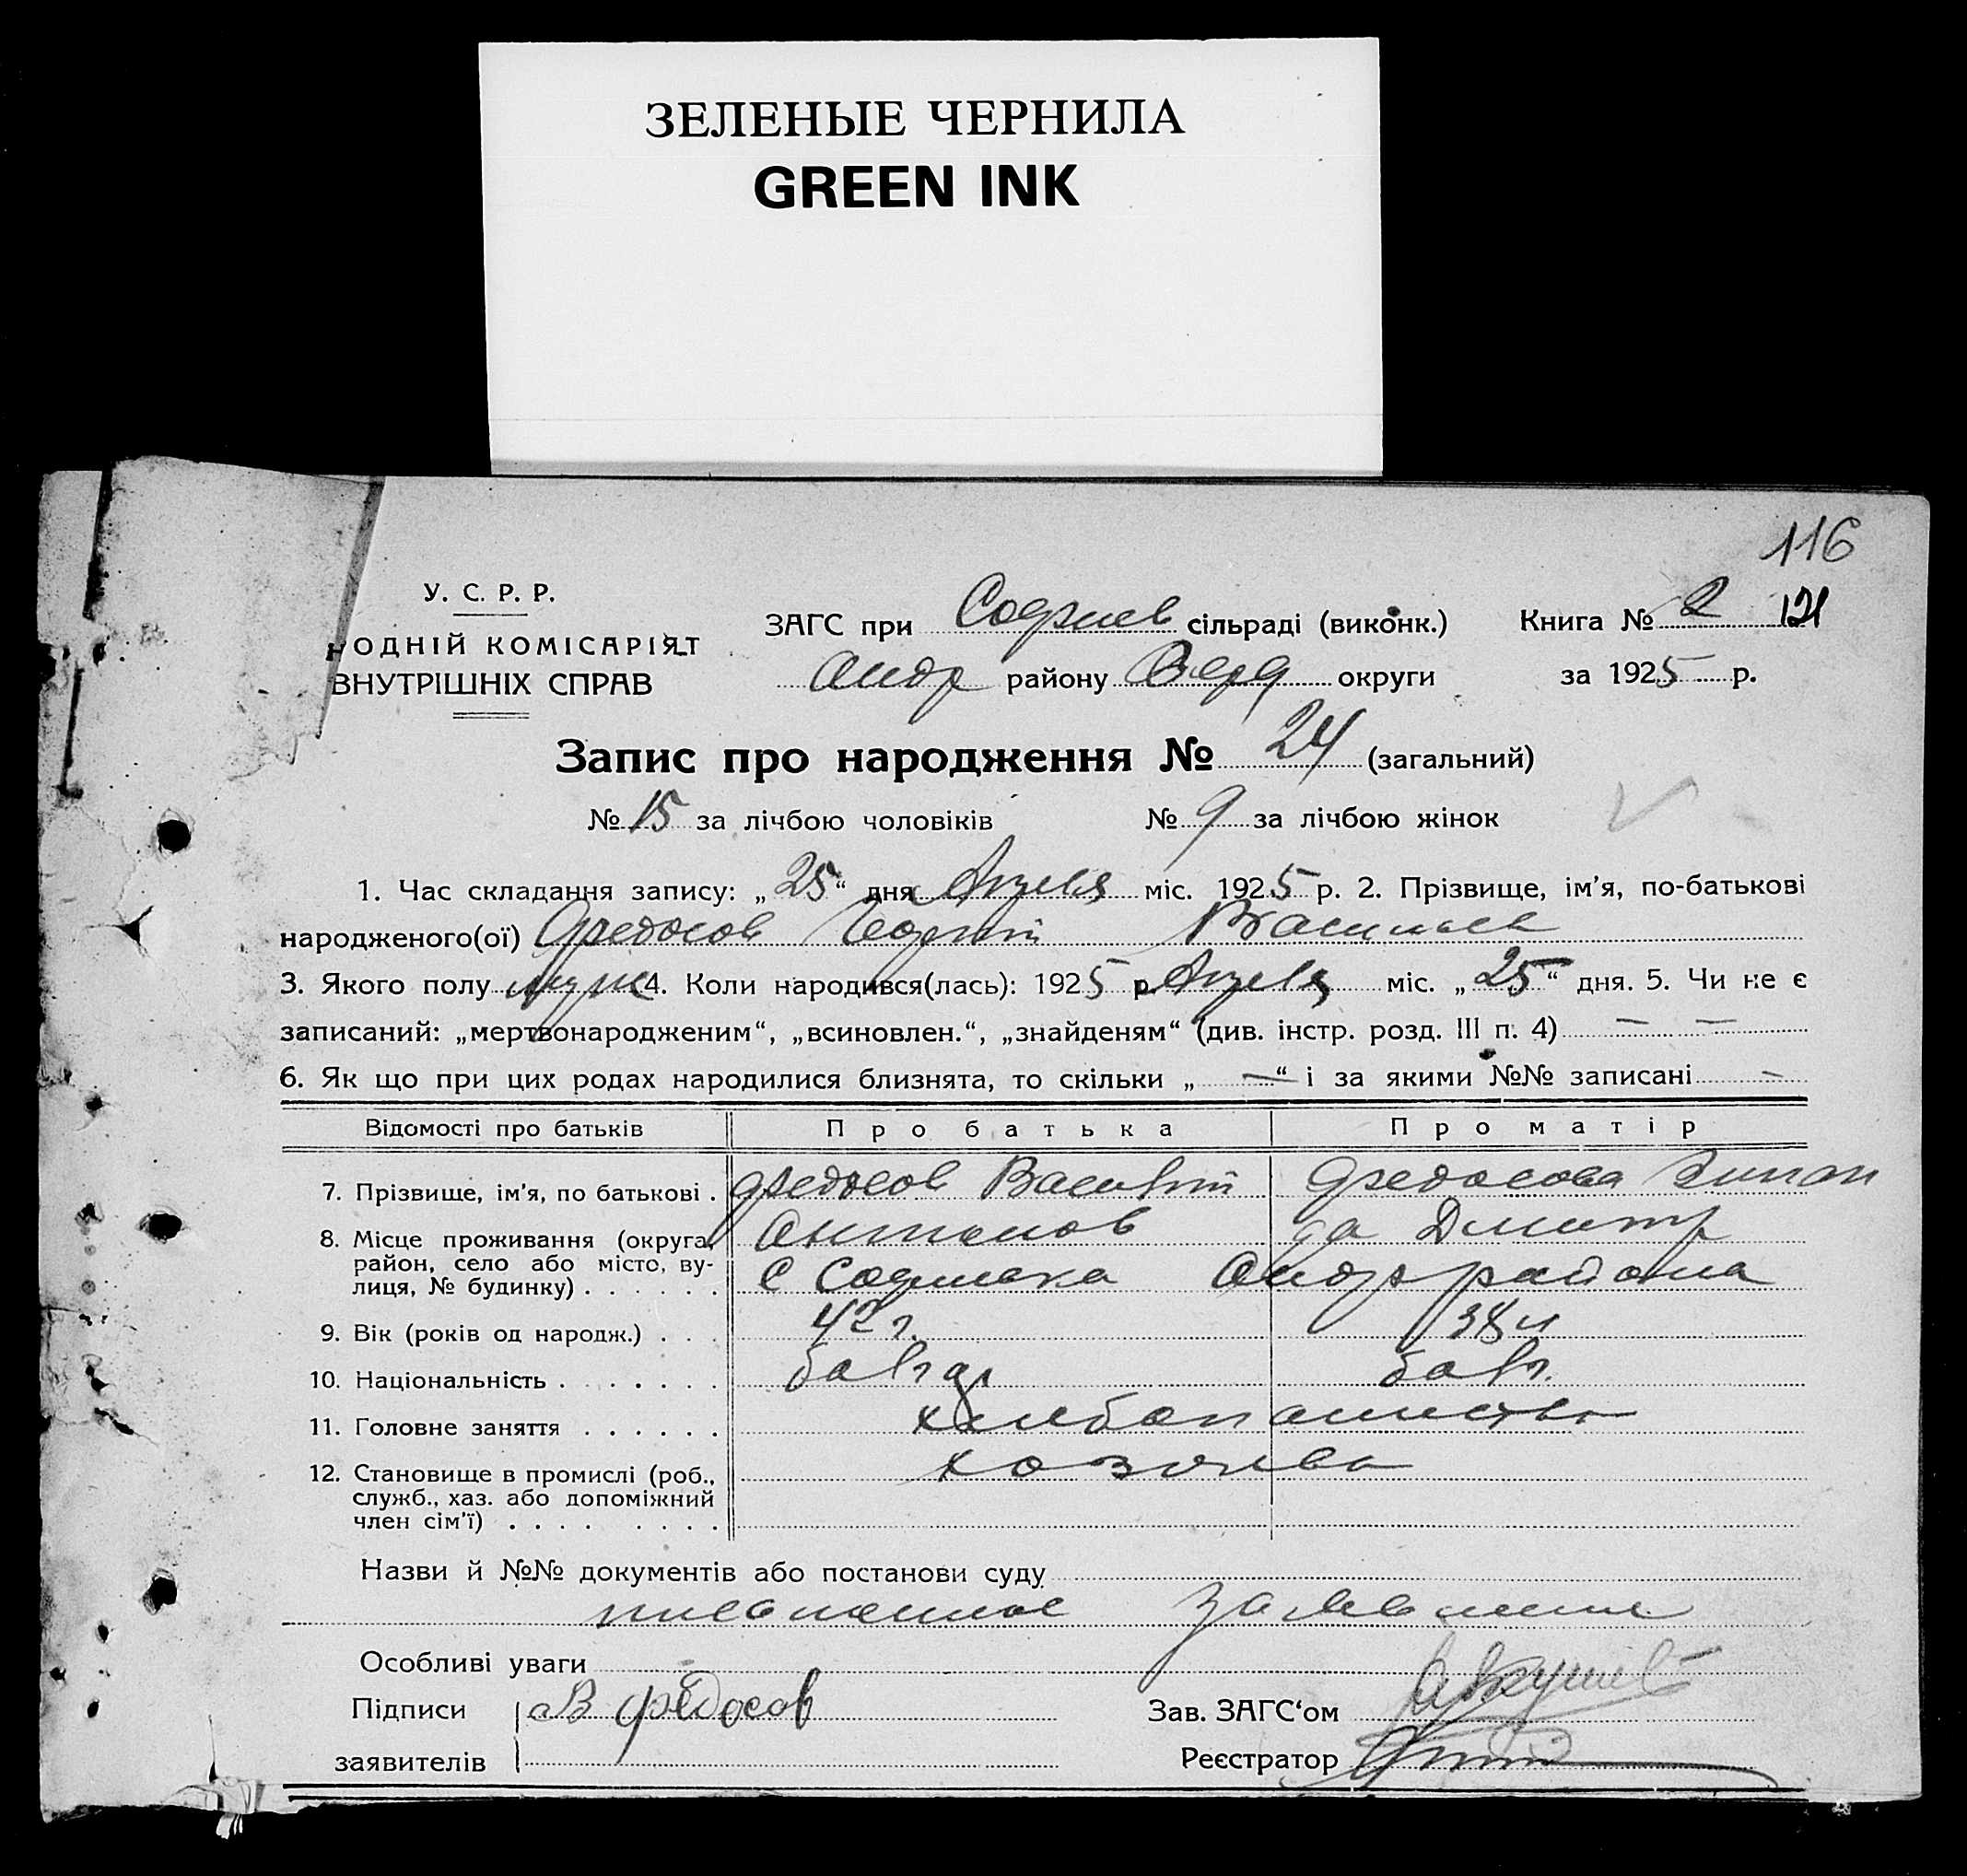 ЗЕЛЕНЫЕ ЧЕРНИЛА
GREEN INK
116
У. С. Р. Р.
РОДНІЙ КОМІСАРІЯТ
ВНУТРІШНІХ СПРАВ
ЗАГС при Софиев сільраді (виконк.)
Андр району Берд округи
Книга № 2 121
за 1925 р.
Запис про народження № 24 (загальний)
№ 15 за лічбою чоловіків № 9 за лічбою жінок
1. Час складання запису: „25“ дня Апреля міс. 1925 р. 2. Прізвище, ім’я, по-батькові
народженого(ої) Федосов Георгій Васильев
3. Якого полу муж 4. Коли народився(лась): 1925 р. Апреля міс. „25“ дня. 5. Чи не є
записаний: „мертвонародженим“, „всиновлен.“, „знайденям“ (див. інстр. розд. III п. 4) — —
6. Як що при цих родах народилися близнята, то скільки „—“ і за якими №№ записані —
Відомості про батьків Про батька Про матір
7. Прізвище, ім’я, по батькові . Федосов Василий Федосова Зинаи
Антонов да Дмитр
8. Місце проживання (округа, район, село або місто, вулиця, № будинку) . . . . . . С Софиевка Андр района
9. Вік (років од народж.) . . . 42 г. 38 л
10. Національність . . . . . . . болгар болг.
11. Головне заняття . . . . . . хлебопашество
12. Становище в промислі (роб., служб., хаз. або допоміжний член сім’ї) . . . . . . . . хозяева
Назви й №№ документів або постанови суду
письменное заявление
Особливі уваги
Підписи В Федосов
заявителів
Зав. ЗАГС‘ом
Реєстратор